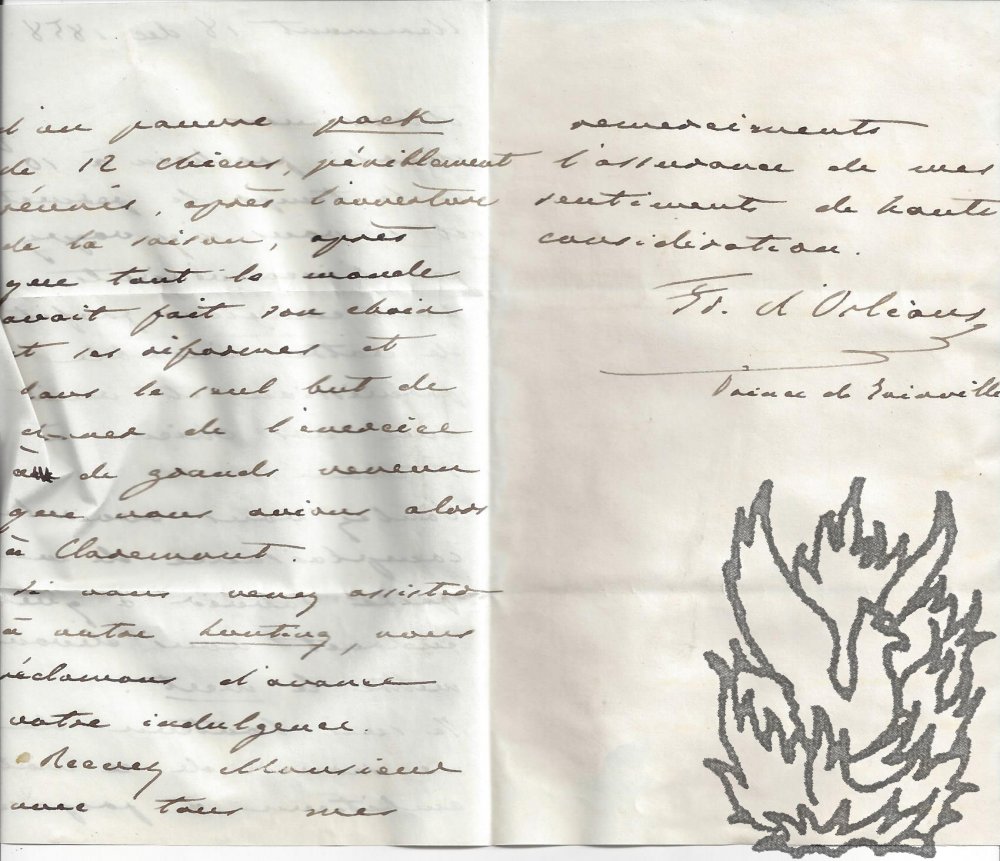 d'un pauvre pack
de 12 chiens, péniblement
réunis, après l'ouverture
de la saison, après
que tout le monde
avait fait son choix
et ses réformes et
dans le seul but de
donner de l'exercice
à de grands neveux
que nous avions alors
à Claremont.
Si vous venez assister
à notre hunting, nous
réclamons d'avance
votre indulgence.
Recevez Monsieur
avec tous mes
remerciements
l'assurance de mes
sentiments de haute
considération.
Fd. d'Orléans
Prince de Joinville